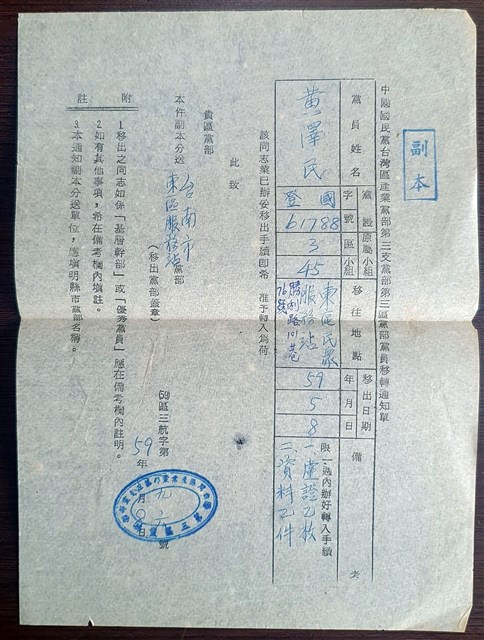 副本
中國國民黨台灣區產業黨部第三支黨部第三區黨部黨員移轉通知單
黨員姓名
黨證字號
原屬小組
區
小組
移往地點
移出日期
年月日
備考
黃澤民
國登
61788
3
45
東區民眾服務站
勝利路
59
5
8
限一週內辦好轉入手續
一、黨證乙枚
二、資料乙件
該同志業已辦妥移出手續即希 准予轉入為荷
此致
貴區黨部
本件副本分送
台南市
東區服務站
黨部
(移出黨部蓋章)
59區三航字第
號
59年
月
日
附註
1.移出之同志如係「基層幹部」或「優秀黨員」應在備考欄內註明。
2.如有其他事項,希在備考欄內填註。
3.本通知副本分送單位,應填明縣市黨部名稱。